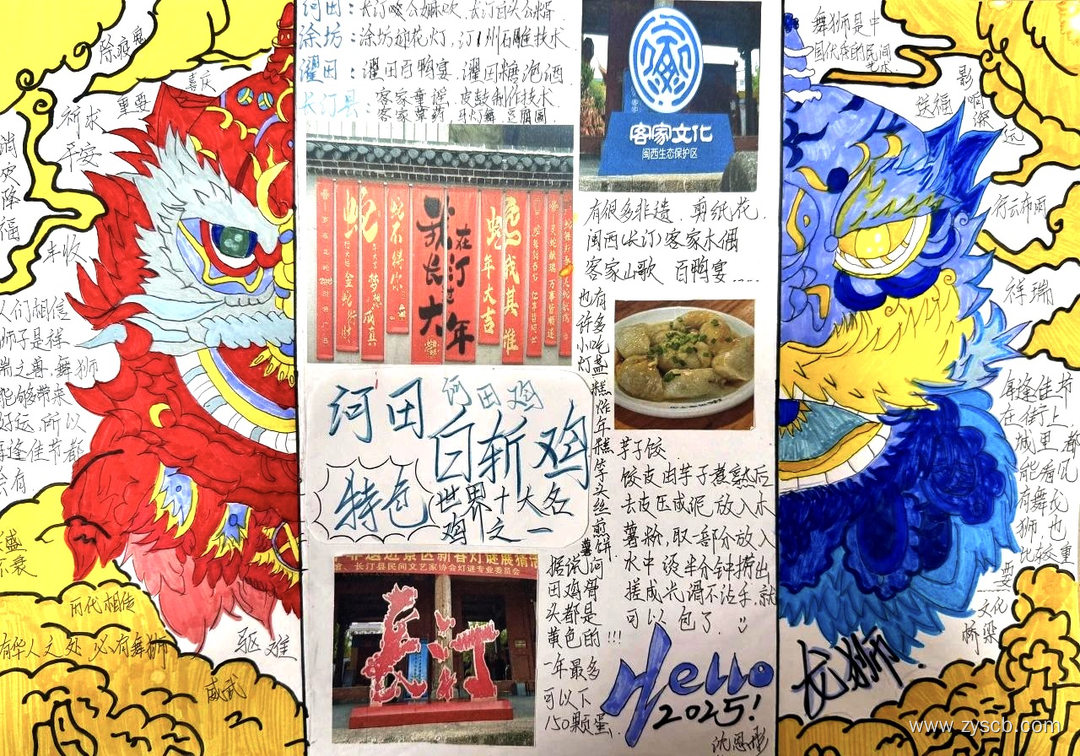 除病鬼
喜庆
重要
祈求
平安
消灾降福
丰收
人们相信
狮子是祥
瑞之尊,舞狮
能够带来
好运,所以
每逢佳节都
会有
兴盛
不衰
历代相传
有华人之处,必有舞狮
驱难
威武
河田:
涂坊:涂坊迎花灯,汀州石雕技术
濯田:濯田百鸭宴,濯田糖泡酒
长汀县:客家童谣,皮鼓制作技术
客家草药
豆腐圆
我在长汀大年
年大吉
梦想成真
客家文化
闽西生态保护区
有很多非遗,剪纸花,
闽西(长汀)客家木偶
客家山歌 百鸭宴……
也有许多小吃灯盏糕炸年糕芋头丝煎薯饼
河田
河田鸡
白斩鸡
特色
世界十大名
鸡之一
芋子饺
饺皮由芋子煮熟后
去皮压成泥,放入木
薯粉,取一部分放入
水中烫半分钟捞出
搓成光滑不沾手,就
可以包了
据说河
田鸡骨
头都是
黄色的!!!
一年最多
可以下
150颗蛋
景区新春灯谜展猜活
长汀县民间文艺家协会灯谜专业委员会
长汀
Hello
2025!
舞狮是中
国代表的民间
艺术
影响深远
送福
行云布雨
祥瑞
每逢佳节
在街上
城里都
能看见
有舞龙
狮,也
比较重
要
文化
桥梁
龙狮
www.zyscb.com